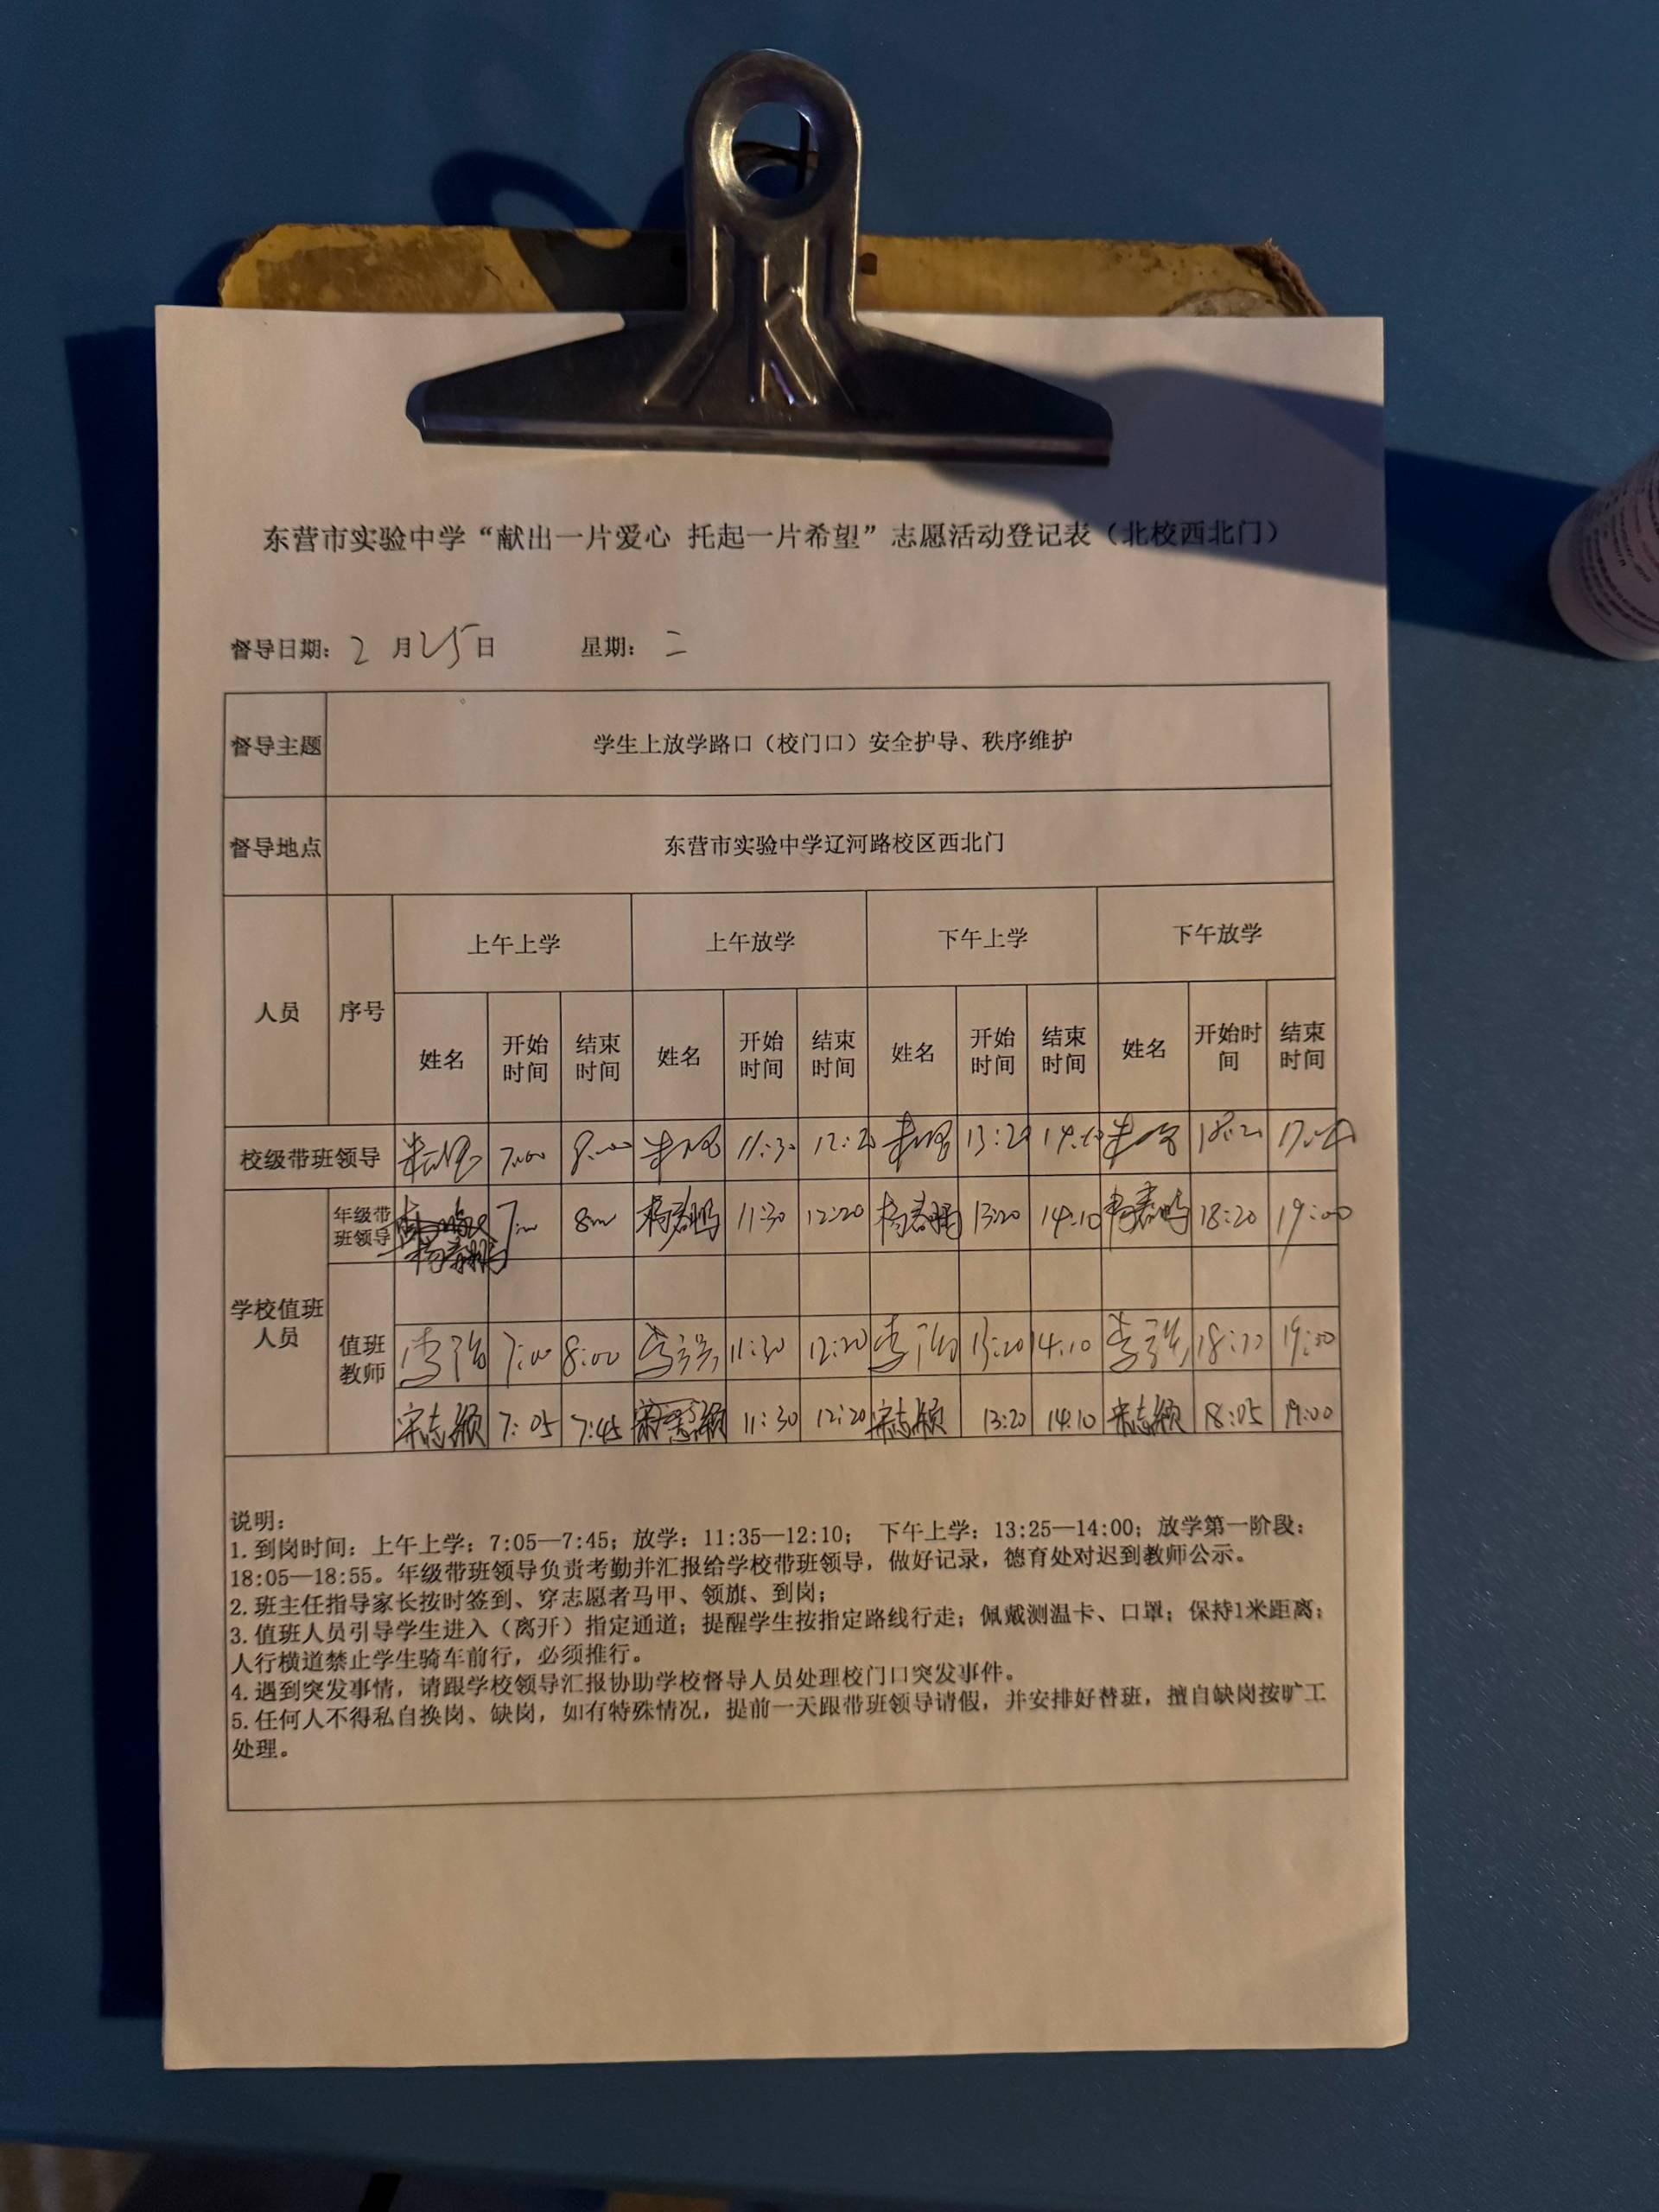 东营市实验中学“献出一片爱心 托起一片希望”志愿活动登记表（北校西北门）
督导日期： 2 月 25 日 星期： 二
督导主题 学生上放学路口（校门口）安全护导、秩序维护
督导地点 东营市实验中学辽河路校区西北门
人员 序号 上午上学 上午放学 下午上学 下午放学
姓名 开始时间 结束时间 姓名 开始时间 结束时间 姓名 开始时间 结束时间 姓名 开始时间 结束时间
校级带班领导 7:00 8:00 11:30 12:20 13:20 14:10 18:20
学校值班人员 年级带班领导 杨春鹏 7:00 8:00 杨春鹏 11:30 12:20 杨春鹏 13:20 14:10 杨春鹏 18:20 19:00
值班教师 李 7:00 8:00 李 11:30 12:20 李 13:20 14:10 李 19:00
宋志颖 7:05 7:45 宋志颖 11:30 12:20 宋志颖 13:20 14:10 宋志颖 18:05 19:00
说明：
1.到岗时间：上午上学：7:05—7:45；放学：11:35—12:10； 下午上学：13:25—14:00；放学第一阶段：
18:05—18:55。年级带班领导负责考勤并汇报给学校带班领导，做好记录，德育处对迟到教师公示。
2.班主任指导家长按时签到、穿志愿者马甲、领旗、到岗；
3.值班人员引导学生进入（离开）指定通道；提醒学生按指定路线行走；佩戴测温卡、口罩；保持1米距离；
人行横道禁止学生骑车前行，必须推行。
4.遇到突发事情，请跟学校领导汇报协助学校督导人员处理校门口突发事件。
5.任何人不得私自换岗、缺岗，如有特殊情况，提前一天跟带班领导请假，并安排好替班，擅自缺岗按旷工
处理。